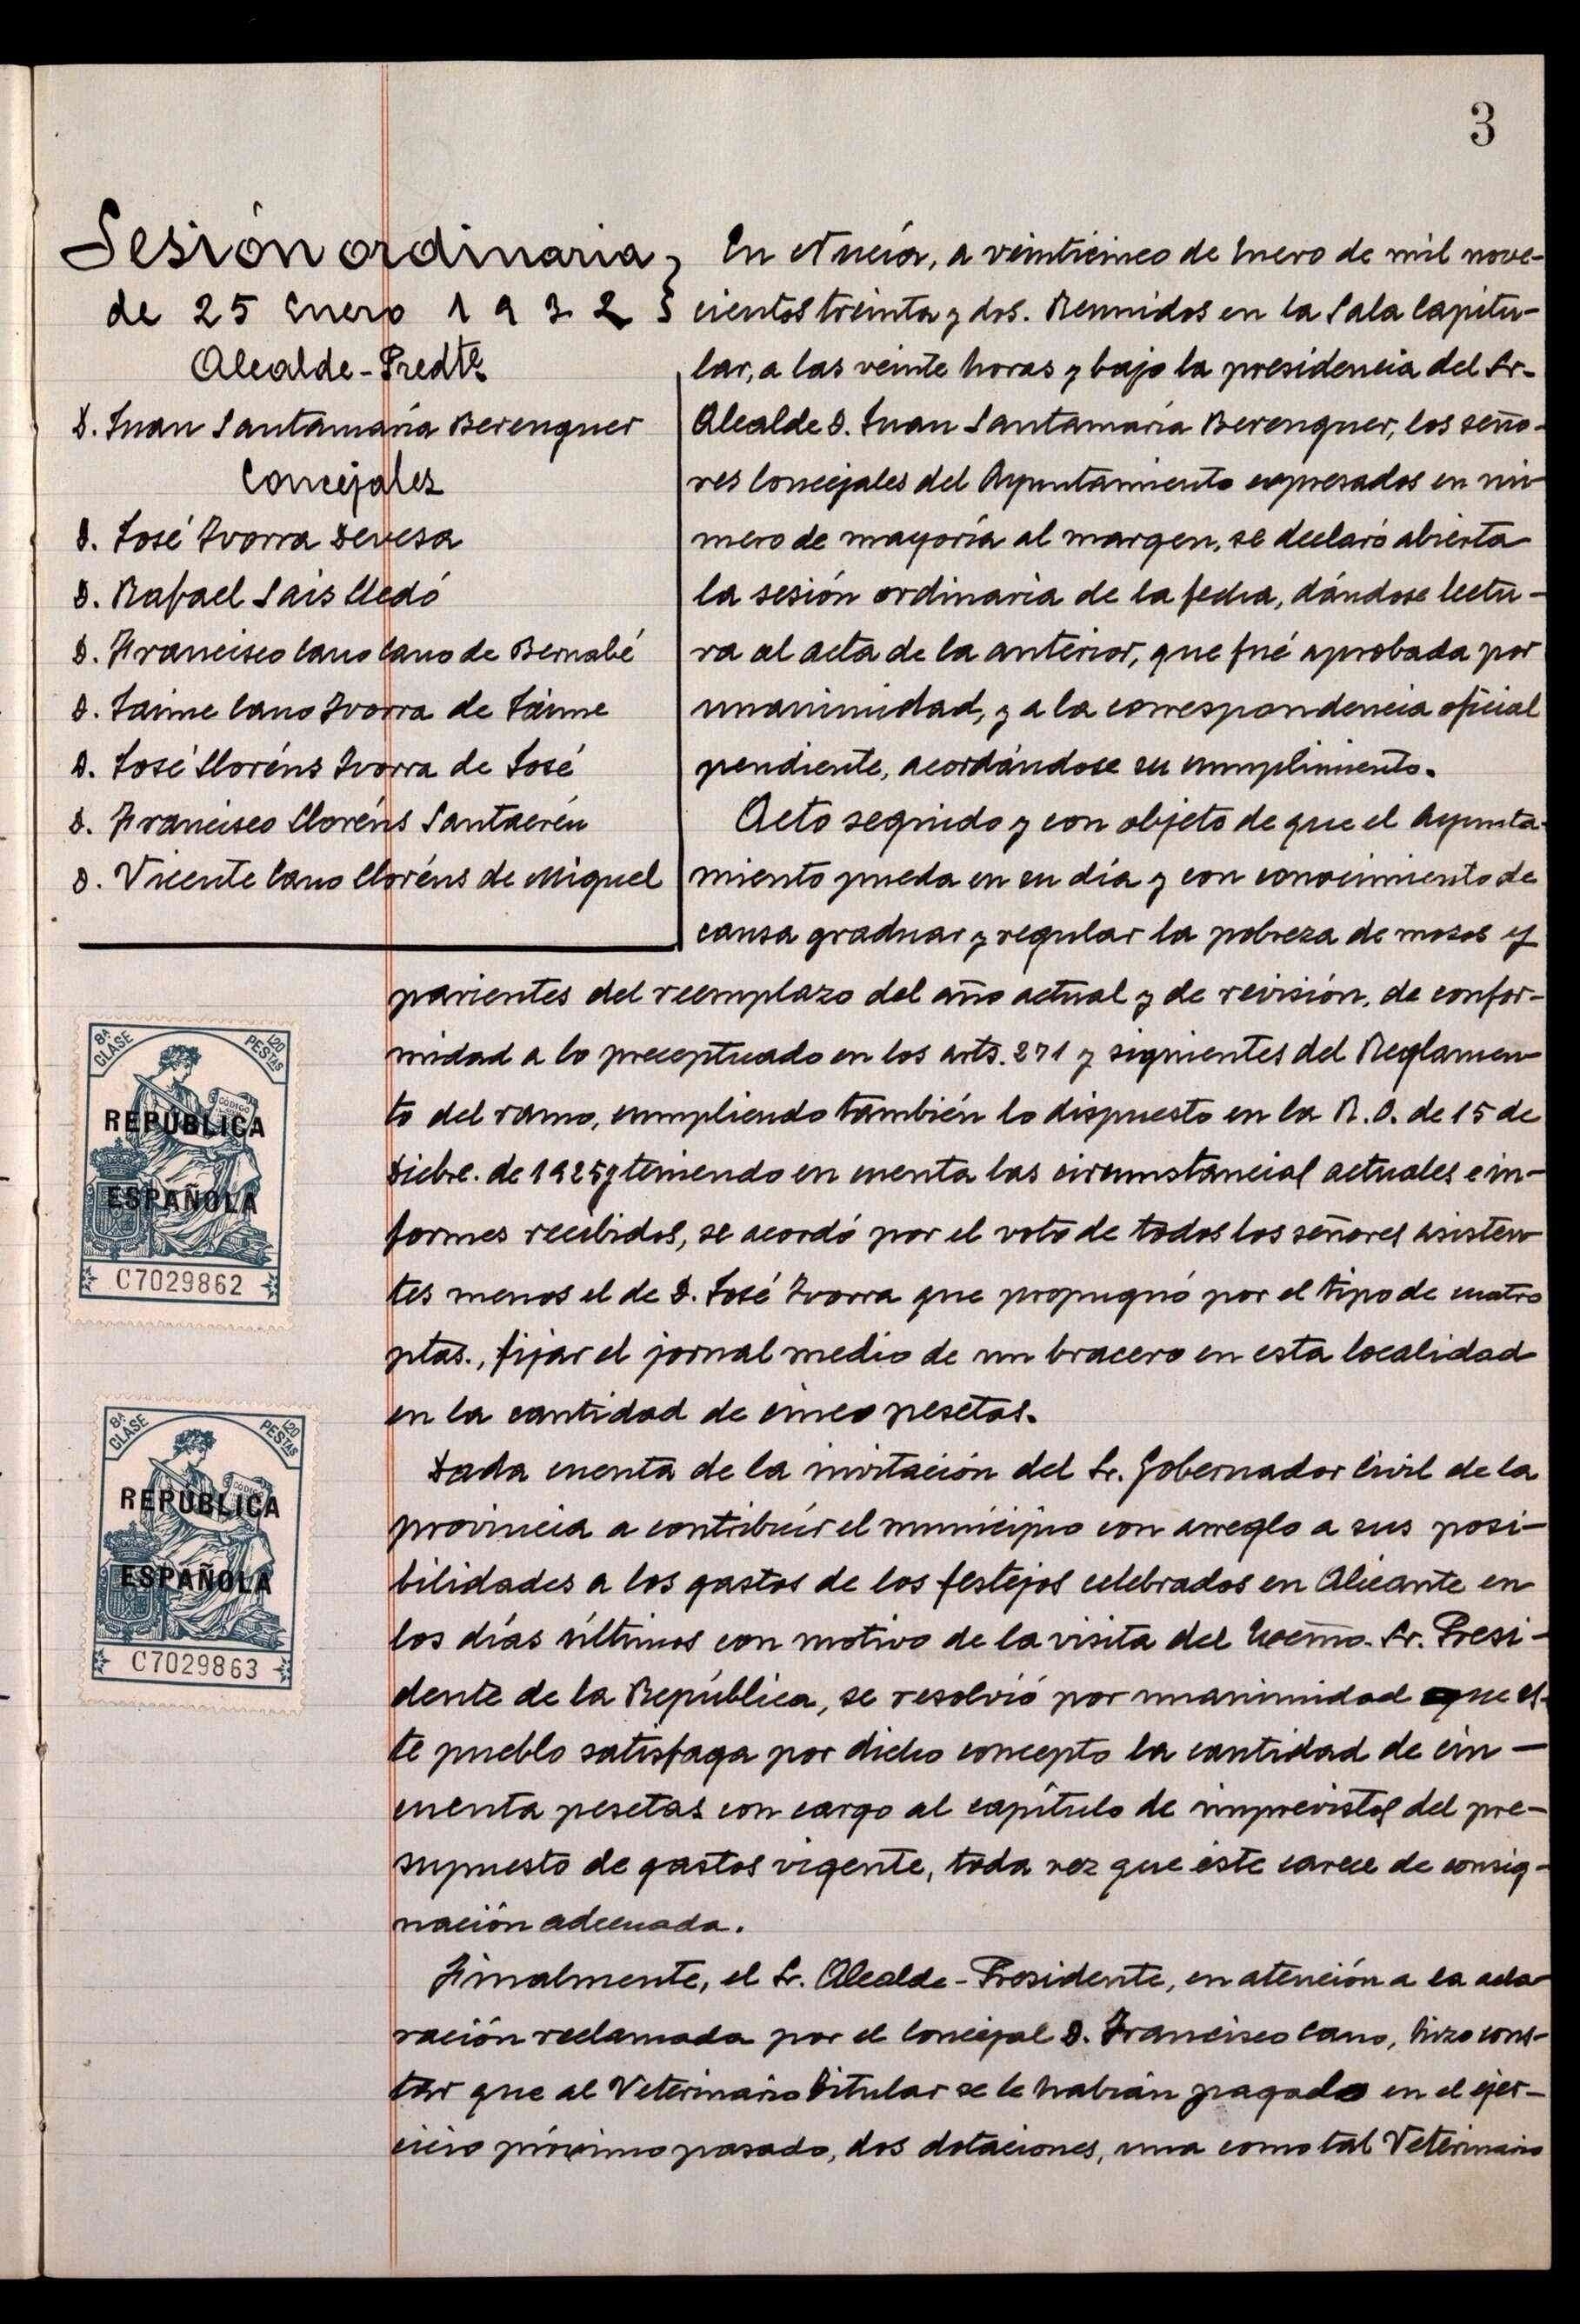 3
Sesión ordinaria
de 25 Enero 1932
Alcalde-Predte.
D. Juan Santamaría Berenguer
Concejales
D. José Ivorra Devesa
D. Rafael Sais Lledó
D. Francisco Cano Cano de Bernabé
D. Jaime Cano Ivorra de Jaime
D. José Lloréns Ivorra de José
D. Francisco Lloréns Santacréu
D. Vicente Cano Lloréns de Miguel
En Nucía, a veinticinco de Enero de mil nove-
cientos treinta y dos. Reunidos en la Sala Capitu-
lar, a las veinte horas y bajo la presidencia del Sr.
Alcalde D. Juan Santamaría Berenguer, los seño-
res Concejales del Ayuntamiento expresados en nú-
mero de mayoría al margen, se declaró abierta
la sesión ordinaria de la fecha, dándose lectu-
ra al acta de la anterior, que fué aprobada por
unanimidad, y a la correspondencia oficial
pendiente, acordándose su cumplimiento.
Acto seguido y con objeto de que el Ayunta-
miento pueda en su día y con conocimiento de
causa graduar y regular la pobreza de mozos y
parientes del reemplazo del año actual y de revisión, de confor-
midad a lo preceptuado en los arts. 271 y siguientes del Reglamen-
to del ramo, cumpliendo también lo dispuesto en la R.O. de 15 de
Dicbre. de 1925 y teniendo en cuenta las circumstancias actuales e in-
formes recibidos, se acordó por el voto de todos los señores asisten-
tes menos el de D. José Ivorra que propugnó por el tipo de cuatro
ptas., fijar el jornal medio de un bracero en esta localidad
en la cantidad de cinco pesetas.
Dada cuenta de la invitación del Sr. Gobernador Civil de la
provincia a contribuír el município con arreglo a sus posi-
bilidades a los gastos de los festejos celebrados en Alicante en
los días últimos con motivo de la visita del Excmo. Sr. Presi-
dente de la República, se resolvió por unanimidad que es-
te pueblo satisfaga por dicho concepto la cantidad de cin-
cuenta pesetas con cargo al capítulo de imprevistos del pre-
supuesto de gastos vigente, toda vez que éste carece de consig-
nación adecuada.
Finalmente, el Sr. Alcalde-Presidente, en atención a la acla-
ración reclamada por el Concejal D. Francisco Cano, hizo cons-
tar que al Veterinario titular se le habían pagado en el ejer-
cicio próximo pasado, dos dotaciones, una como tal Veterinario
8ª CLASE
1'20 PESTAS
CÓDIGO
REPÚBLICA
ESPAÑOLA
C7029862
8ª CLASE
1'20 PESTAS
CÓDIGO
REPÚBLICA
ESPAÑOLA
C7029863